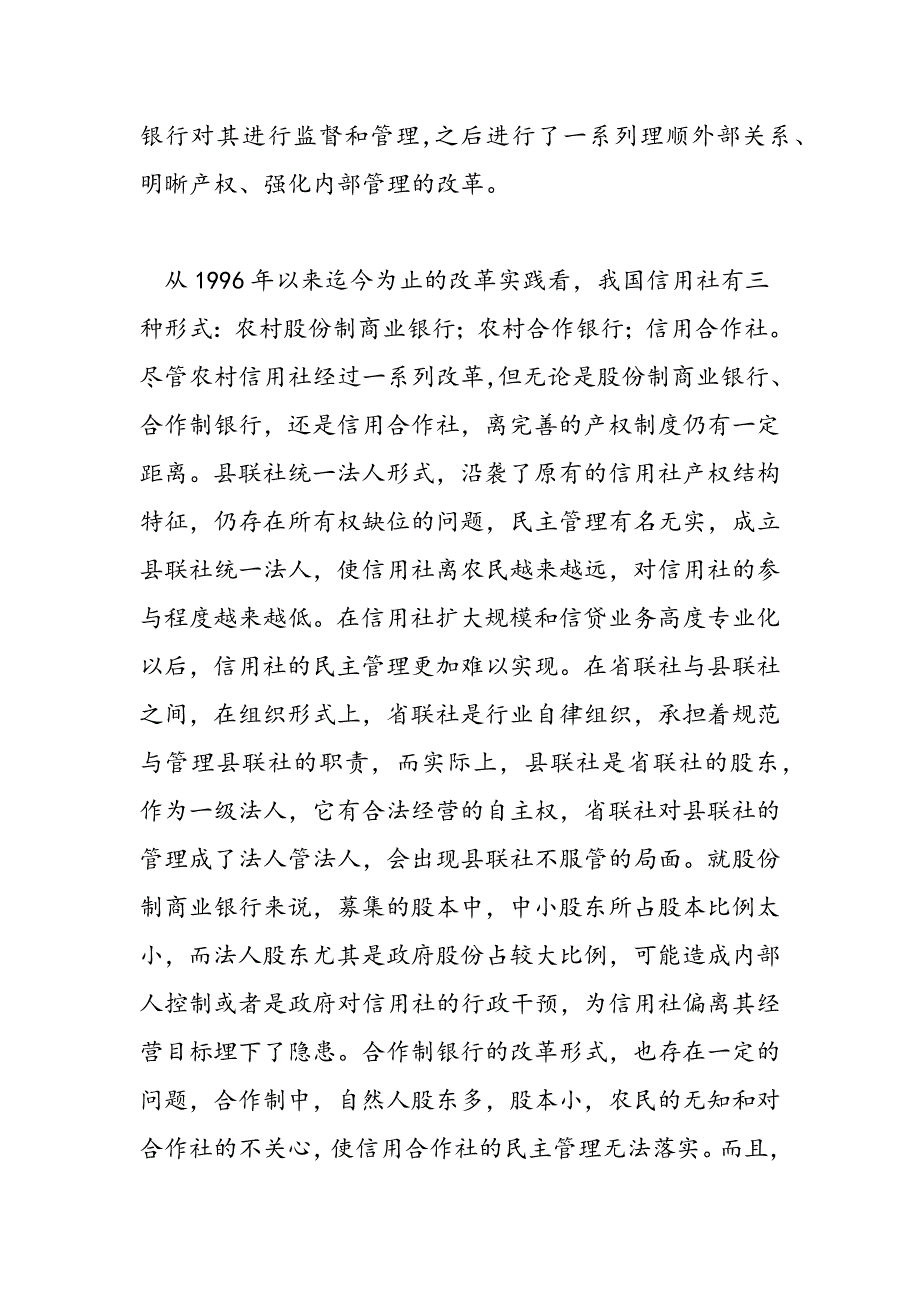 银行对其进行监督和管理,之后进行了一系列理顺外部关系、
明晰产权、强化内部管理的改革。
从1996年以来迄今为止的改革实践看，我国信用社有三
种形式：农村股份制商业银行；农村合作银行；信用合作社。
尽管农村信用社经过一系列改革,但无论是股份制商业银行、
合作制银行，还是信用合作社，离完善的产权制度仍有一定
距离。县联社统一法人形式，沿袭了原有的信用社产权结构
特征，仍存在所有权缺位的问题，民主管理有名无实，成立
县联社统一法人，使信用社离农民越来越远，对信用社的参
与程度越来越低。在信用社扩大规模和信贷业务高度专业化
以后，信用社的民主管理更加难以实现。在省联社与县联社
之间，在组织形式上，省联社是行业自律组织，承担着规范
与管理县联社的职责，而实际上，县联社是省联社的股东，
作为一级法人，它有合法经营的自主权，省联社对县联社的
管理成了法人管法人，会出现县联社不服管的局面。就股份
制商业银行来说，募集的股本中，中小股东所占股本比例太
小，而法人股东尤其是政府股份占较大比例，可能造成内部
人控制或者是政府对信用社的行政干预，为信用社偏离其经
营目标埋下了隐患。合作制银行的改革形式，也存在一定的
问题，合作制中，自然人股东多，股本小，农民的无知和对
合作社的不关心,使信用合作社的民主管理无法落实。而且，